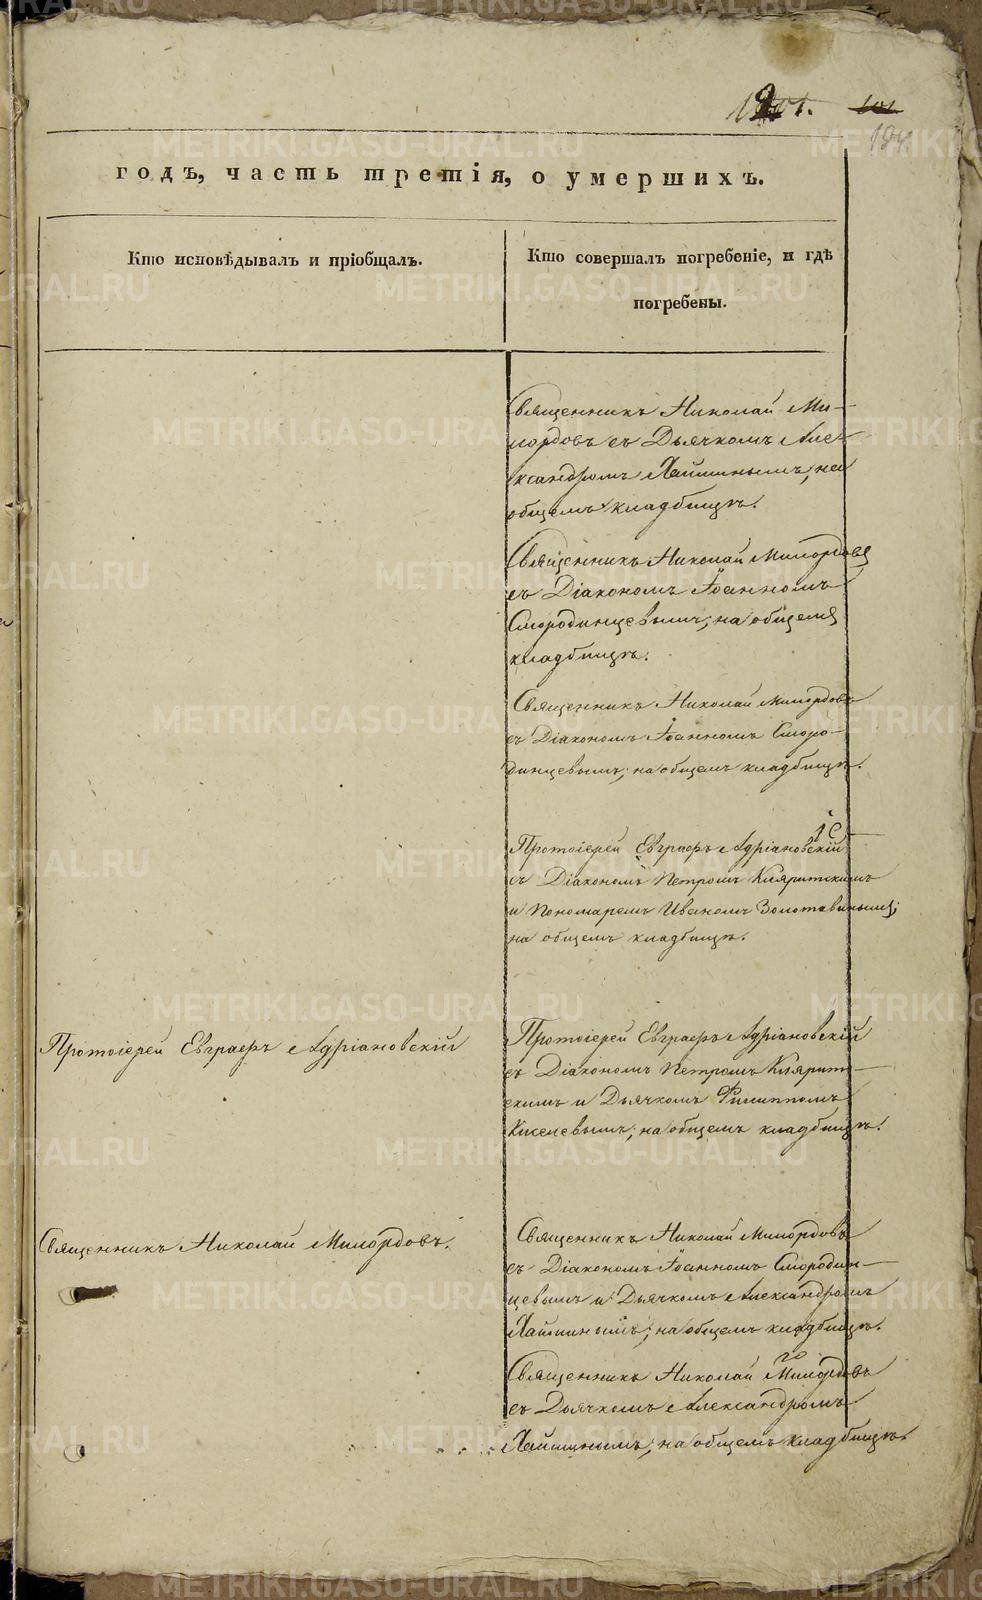 101.
годъ, часть третія, о умершихъ.
Кто исповѣдывалъ и пріобщалъ.
Кто совершалъ погребеніе, и гдѣ
погребены.
Священникъ Николай Ми-
лордовъ съ Дьячкомъ Але-
ксандромъ Хайминымъ, на
общемъ кладбищѣ.
Священникъ Николай Милордовъ
съ Діакономъ Іоанномъ
Смородинцевымъ; на общемъ
кладбищѣ.
Священникъ Николай Милордовъ
съ Діакономъ Іоанномъ Сморо-
динцевымъ; на общемъ кладбищѣ.
Протоіерей Евграфъ Адріановскій
съ Діакономъ Петромъ Кляритскимъ
и Пономаремъ Иваномъ Золотавинымъ;
на общемъ кладбищѣ.
Протоіерей Евграфъ Адріановскій
Протоіерей Евграфъ Адріановскій
съ Діакономъ Петромъ Клярит-
скимъ и Дьячкомъ Филиппомъ
Киселевымъ; на общемъ кладбищѣ.
Священникъ Николай Милордовъ.
Священникъ Николай Милордовъ
съ Діакономъ Іоанномъ Смородин-
цевымъ и Дьячкомъ Александромъ
Хайминымъ; на общемъ кладбищѣ.
Священникъ Николай Милордовъ
съ Дьячкомъ Александромъ
Хайминымъ; на общемъ кладбищѣ.
METRIKI.GASO-URAL.RU